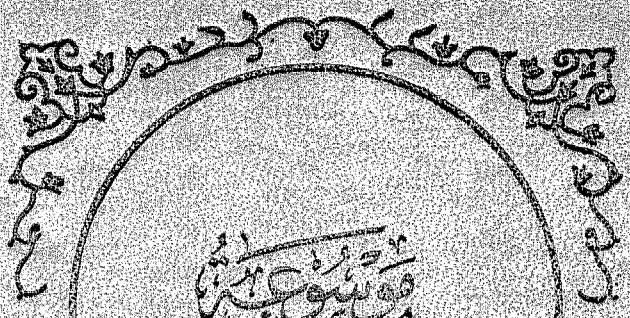 موسوعة